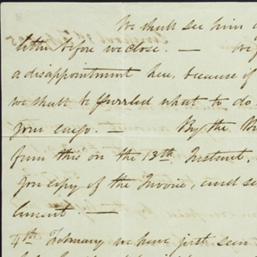 We shall see him
before we close. —
a disappointment here, because of
we shall be puzzled what to do
your cargo. — By the
from this on the 13th Instant,
you copy of the Invoice, and
4th February we have just seen